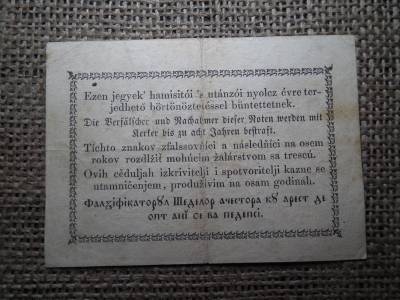 Ezen jegyek' hamisitói 's utánzói nyolcz évre ter-
jedhető börtönöztetéssel büntettetnek.
Die Verfälscher und Nachahmer dieser Noten werden mit
Kerker bis zu acht Jahren bestraft.
Tíchto znakov zfalssovníci a následňíci na osem
rokov rozdlžiť mohúcim žalárstvom sa trescú.
Ovih céduljah izkrivitelji i spotvoritelji kazne se
utamničenjem, produživim na osam godinah.
Фалзіфікаторꙋл Шеделор ачестора кꙋ арест де
опт анї се ва педепсі.